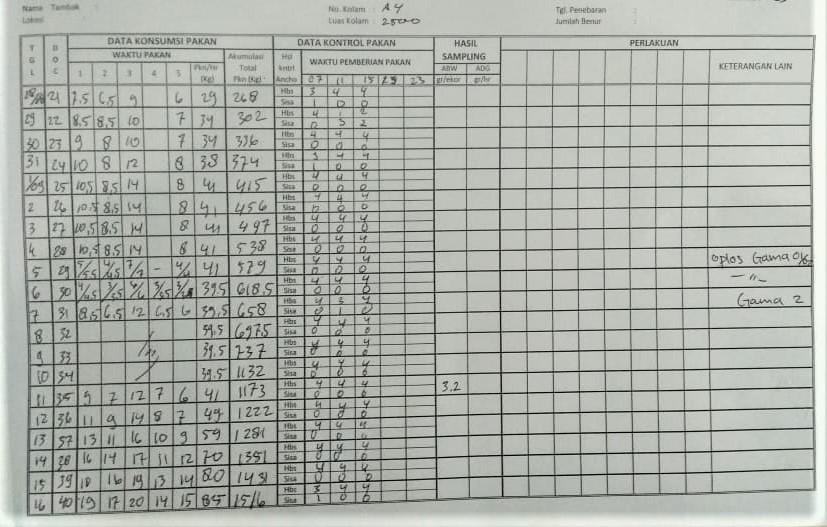 Nama Tambak :
Lokasi
No. Kolam : A4
Luas Kolam : 2500
Tgl. Penebaran :
Jumlah Benur :
TGL DOC DATA KONSUMSI PAKAN DATA KONTROL PAKAN HASIL SAMPLING PERLAKUAN KETERANGAN LAIN
WAKTU PAKAN Pkn/hr (Kg) Akumulasi Total Pkn (Kg) Hsl kntrl Ancho WAKTU PEMBERIAN PAKAN ABW gr/ekor ADG gr/hr
1 2 3 4 5 07 11 15 23
21 7,5 6,5 9 6 29 268 Hbs 3 4 4
Sisa 1 0 0
29 22 8,5 8,5 10 7 34 302 Hbs 4 1 2
Sisa 0 3 2
30 23 9 8 10 7 34 336 Hbs 4 4 4
Sisa 0 0 0
31 24 10 8 12 8 38 374 Hbs 3 4 4
Sisa 1 0 0
1/09 25 10,5 8,5 14 8 41 415 Hbs 4 4 4
Sisa 0 0 0
2 26 10,5 8,5 14 8 41 456 Hbs 4 4 4
Sisa 0 0 0
3 27 10,5 8,5 14 8 41 497 Hbs 4 4 4
Sisa 0 0 0
4 28 10,5 8,5 14 8 41 538 Hbs 4 4 4
Sisa 0 0 0
5 29 5/5,5 4/4,5 7/7 - 4/4 41 579 Hbs 4 4 4 oplos Gama
Sisa 0 0 0
6 30 4/4,5 3/3,5 6/6 3/3,5 39.5 618.5 Hbs 4 4 4 — " —
Sisa 0 0 0
7 31 8,5 6,5 12 6,5 6 39,5 658 Hbs 4 3 4 Gama 2
Sisa 0 1 0
8 32 39.5 697.5 Hbs 4 4 4
Sisa 0 0 0
9 33 39.5 737 Hbs 4 4 4
Sisa 0 0 0
10 34 39.5 1132 Hbs 4 4 4
Sisa 0 0 0
11 35 9 7 12 7 6 41 1173 Hbs 4 4 4 3.2
Sisa 0 0 0
12 36 11 9 14 8 7 49 1222 Hbs 4 4 4
Sisa 0 0 0
13 37 13 11 16 10 9 59 1281 Hbs 4 4 4
Sisa 0 0 0
14 38 16 14 17 11 12 70 1351 Hbs 4 4 4
Sisa 0 0 0
15 39 18 16 19 13 14 80 1431 Hbs 4 4 4
Sisa 0 0 0
16 40 19 17 20 14 15 85 1516 Hbs 3 4 4
Sisa 1 0 0